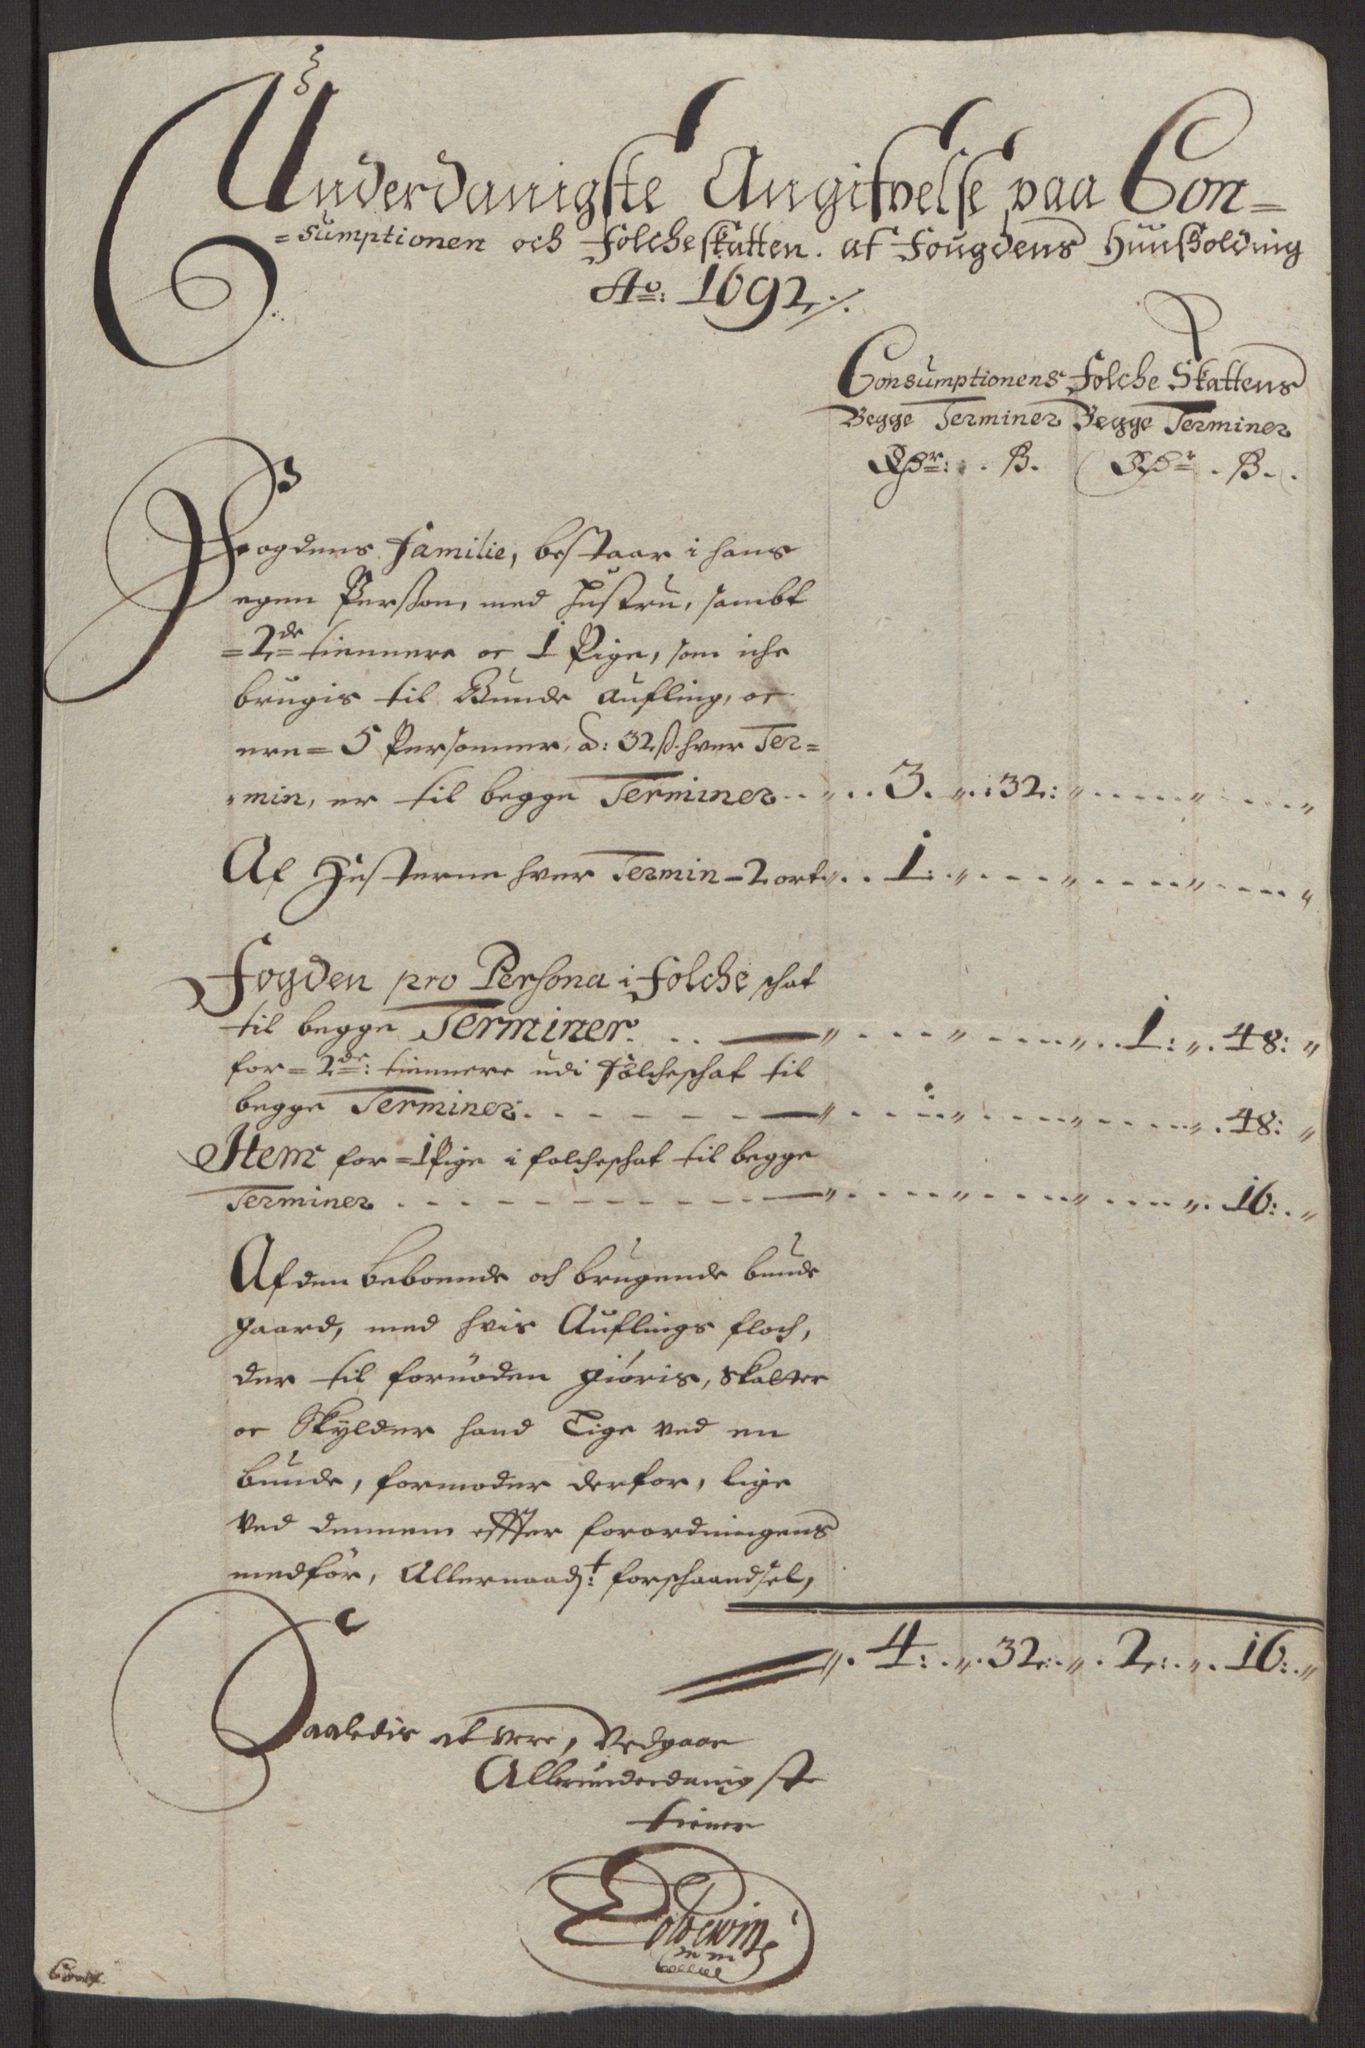 Underdanigste Angifvelse paa Con=
=sumptionen och Folcheskatten. af Fougdens Huusholding
Ao: 1692 ./.
Consumptionens Folche Skattens
Begge Terminer Begge Terminer
Rdr: ß. Rdr ß.
Fogdens Familie, bestaar i hans
egen Persson, med Hustru, sambt
=2de tiennere oc 1 Pige, som iche
brugis til Bunde Aufling, oc
ere= 5 Personner, à: 32 ß. hver Ter=
=min, er til begge Terminer 3. 32:
Af Hesterne hver Termin - 2 ort 1.
Fogden pro Persona i Folche schat
til begge Terminer. 1: 48:
for= 2de: tiennere udi Folcheschat til
begge Terminer. 48:
Item for =1 Pige i folcheschat til begge
Terminer 16:
Af den beboende och brugende bunde
gaard, med hvis Auflings floch,
der til fornöden giöris, Skatter
oc Skylder hand Lige ved en
bunde, formoder derfor, lige
ved dennem effter forordningens
medför, Allernaadst: forschaandsel,
4: 32: 2: 16:
Saaledis at vere, Vedgaar
Allerunderdanigst
tiener